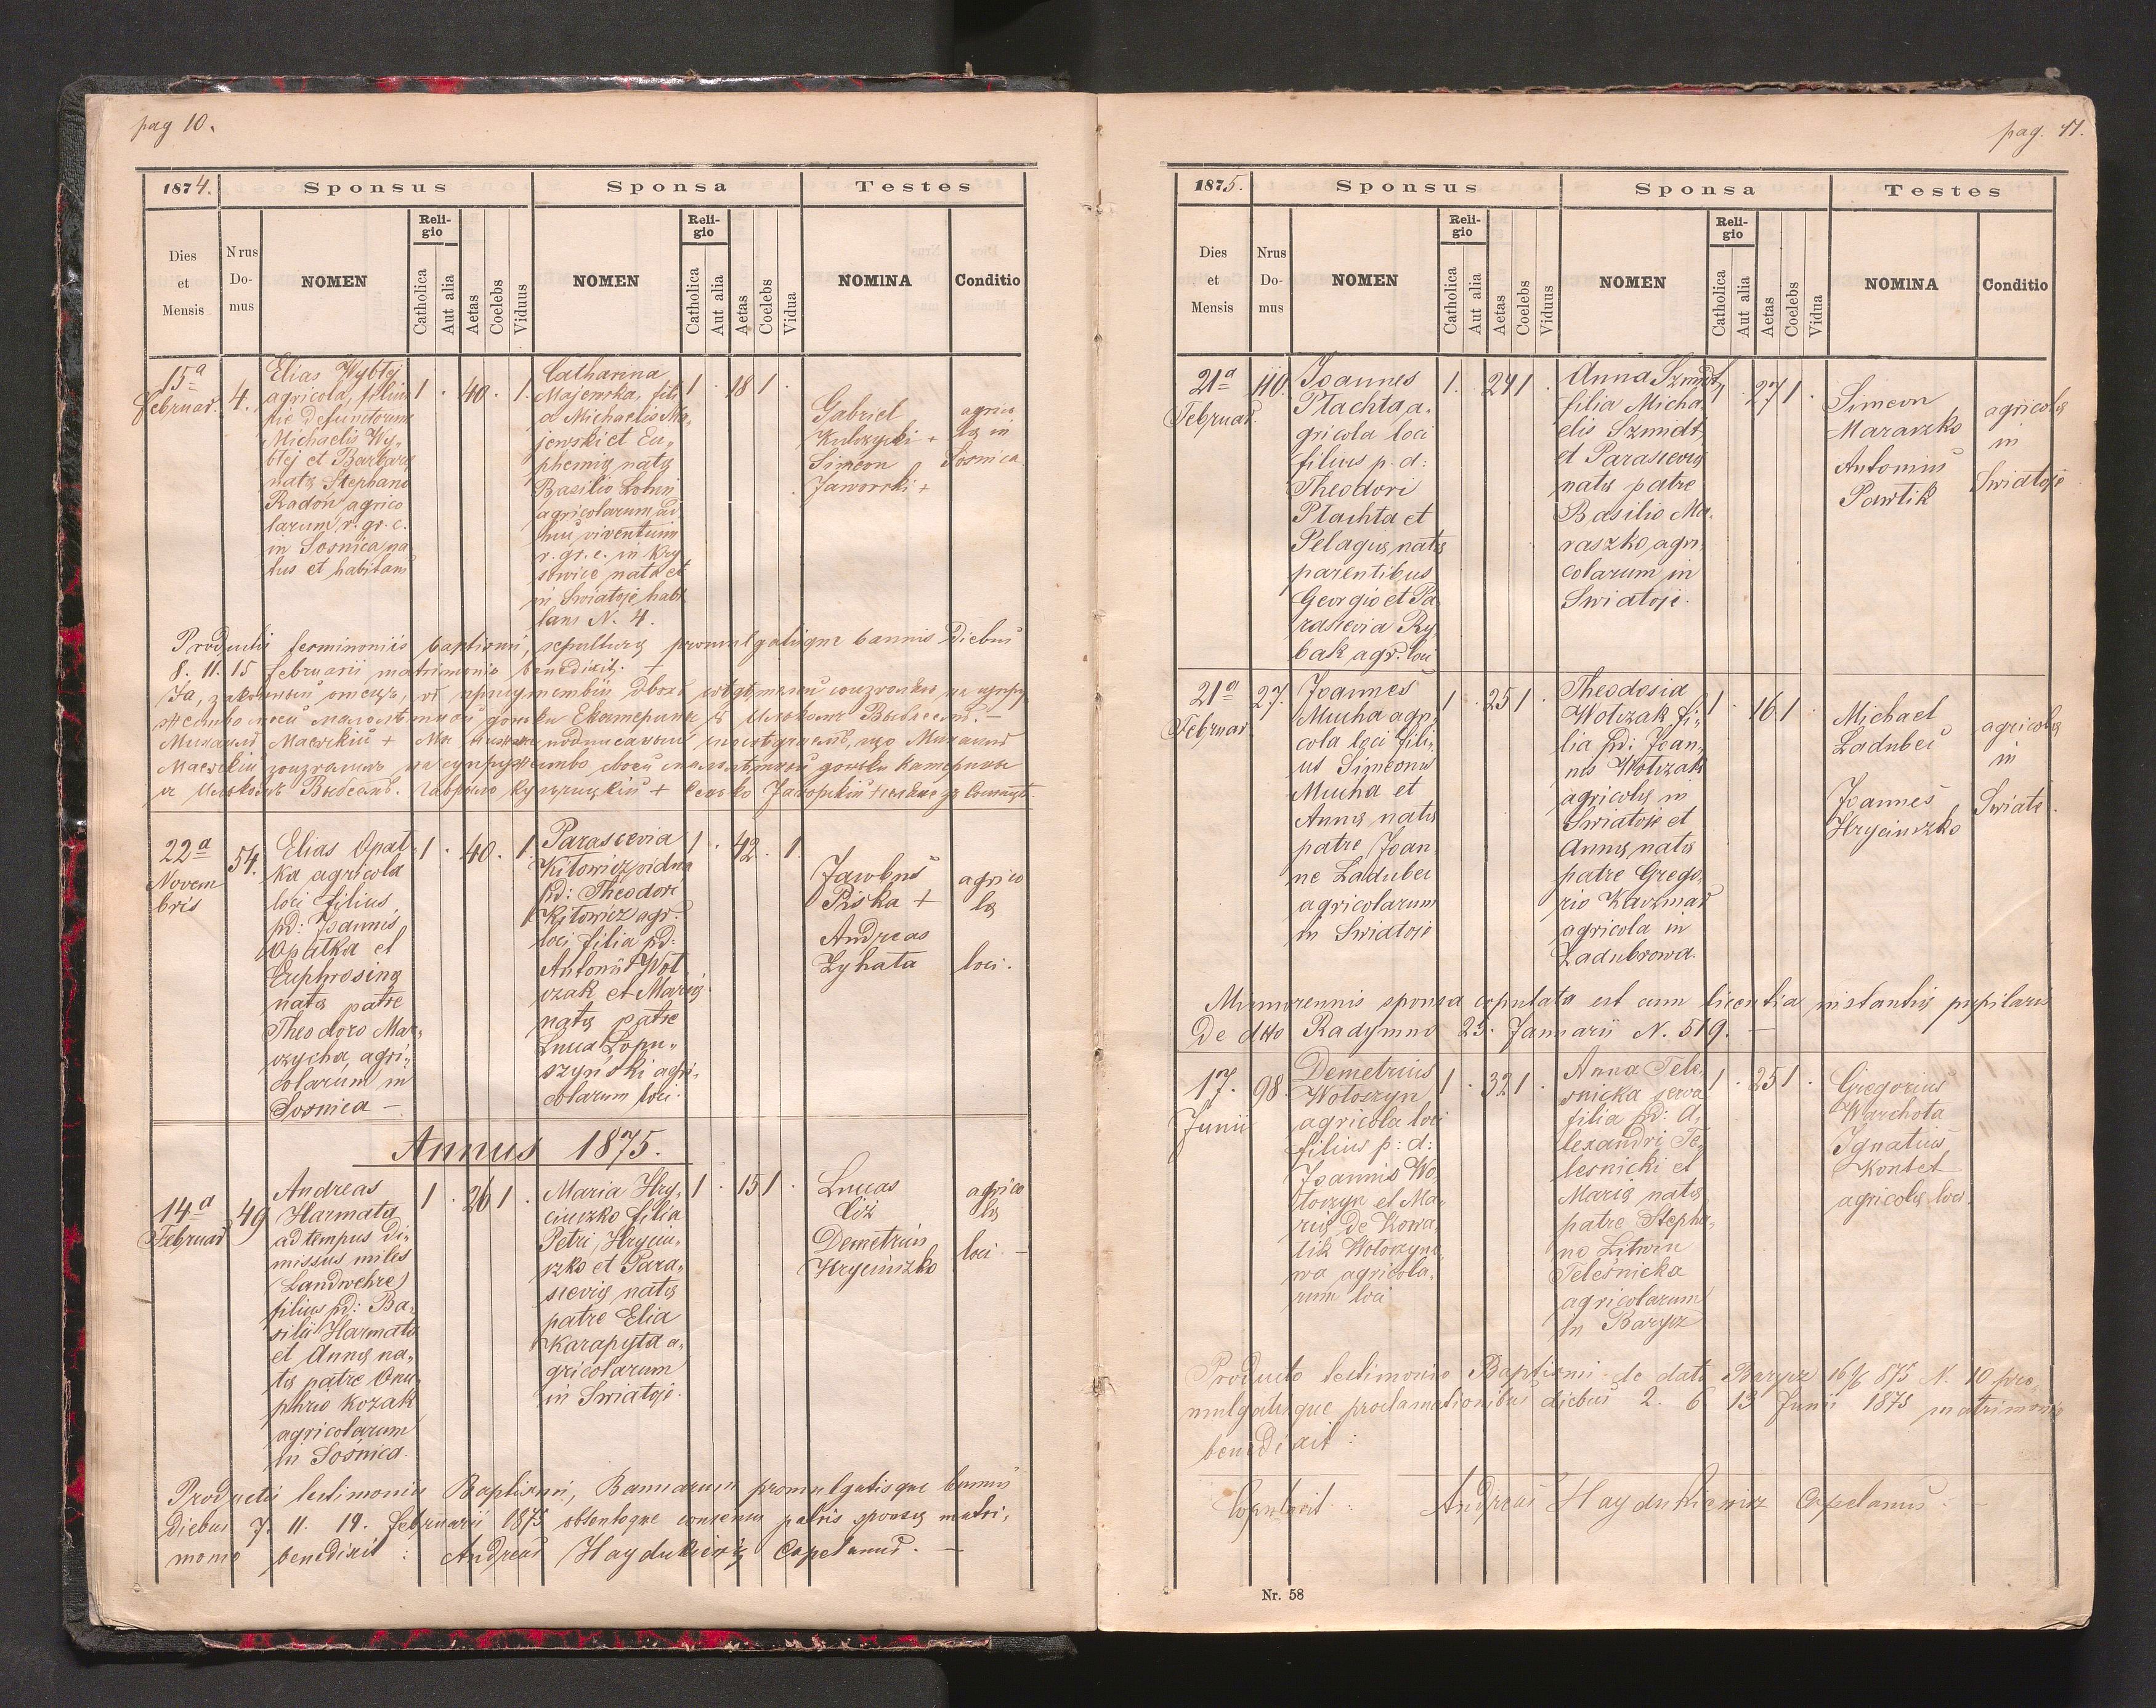 pag 10.
1874.
Sponsus
Sponsa
Testes
Dies et Mensis
Nrus Domus
NOMEN
Religio
Catholica
Aut alia
Aetas
Coelebs
Viduus
NOMEN
Religio
Catholica
Aut alia
Aetas
Coelebs
Vidua
NOMINA
Conditio
15ª
Februar.
4.
Elias Wybtej
agricola, filius
Michaelis Wy-
btej et Barbarę
natę Stephano
Radoń agrico
larum, r. gr. c.
in Sosnica na
tus et habitans
1 · 40 · 1.
Catharina
Majewska, fili
a Michaelis Ma-
jewski et Eu-
phemię natę
Basilio
agricolarum, ad
huc viventium
r. gr. c. in Kry
sowice nata et
in Swiatoje habi
tans N. 4.
1 · 18 1 ·
Gabriel
Kulczycki +
Simeon
Jaworski +
agrico
lę in
Sosnica
Productis testimoniis baptismi, sepulturę promulgatisque bannis diebus
8. 11. 15 februarii matrimonio benedixit. +
22ª
Novem
bris
54.
Elias Opat-
ka agricola
loci filius
pd: Joannis
Opatka et
Euphrosinę
natę patre
Theodoro Mar-
czycha, agri-
colarum in
Sosnica —
1 · 40 · 1
Parascevia
Kitowicz vidua
pd: Theodori
Kitowicz agr.
loci filia pd:
Antonii Wot
czak et Marię
natę patre
Luca Łopu-
szyński agri-
colarum loci.
1 · 42 · 1
Jacobus
Piska +
Andreas
Zyhata
agrico
lę
loci.
Annus 1875.
14ª
Februar
49
Andreas
Harmata
ad tempus di-
missus miles
(Landwehre)
filius pd: Ba-
silii Harmata
et Annę na-
tę patre Onu
phrio Kozak
agricolarum
in Sosnica.
1 · 26 1 ·
Maria Hry-
ciuszko filia
Petri Hryciu-
szko et Para-
scevię natę
patre Elia
Karapyta a-
gricolarum
in Swiatoje.
1 · 15 1 ·
Lucas
Liż
Demetrius
Hryciuszko
agrico
lę
loci —
Productis testimoniis Baptismi, Bannorum promulgatisque bannis
diebus 7. 11. 14. februarii 1875 obtentoque consensu patris sponsę matri-
monio benedixit: Andreas Haydukiewicz Capelanus. —
pag. 11.
1875.
Sponsus
Sponsa
Testes
Dies et Mensis
Nrus Domus
NOMEN
Religio
Catholica
Aut alia
Aetas
Coelebs
Viduus
NOMEN
Religio
Catholica
Aut alia
Aetas
Coelebs
Vidua
NOMINA
Conditio
21ª
Februar.
110.
Joannes
Płachta a-
gricola loci
filius p. d:
Theodori
Płachta et
Pelagię natę
parentibus
Georgio et Pa
rascevia Ry
bak agr. loci
1. · 24 1 ·
Anna Szmidt
filia Micha-
elis Szmidt
et Parascevię
natę patre
Basilio Ma-
raszko, agri-
colarum in
Swiatoje.
· 27 1 ·
Simeon
Maraszko
Antonius
Pawlik
agricolę
in
Swiatoje
21ª
Februar
27.
Joannes
Mucha agri-
cola loci fili-
us Simeonis
Mucha et
Annę natę
patre Joan-
ne Zadubei
agricolarum
in Swiatoje
1 · 25 1 ·
Theodosia
Wotczak fi-
lia pd: Joan-
nis Wotczak
agricolę in
Swiatoje et
Annę natę
patre Grego-
rio Kaczmar
agricola in
Zadubrowa.
1 · 16 1 ·
Michael
Zadubei
Joannes
Hryciuszko
agricolę
in
Swiate.
Minnorennis sponsa copulata est cum licentia instantię pupilaris
De dtto Radymno 25. Januarii N. 519. —
17.
Junii
98.
Demetrius
Wotoszyn
agricola loci
filius p: d:
Joannis Wo
toszyn et Ma-
rię de Kowa
lik Wotoszyno
wa agricola-
rum loci
1 · 32 1 ·
Anna Tele-
śnicka serva
filia pd: A-
lexandri Te-
leśnicki et
Marię natę
patre Stepha-
no Litwin
Teleśnicka
agricolarum
in Barycz
1 · 25 1 ·
Gregorius
Warchota
Ignatius
Kontet
agricolę loci
Producto testimonio Baptismi de dato Barycz 16/6 875 N. 10 pro-
mulgatisque proclamationibus diebus 2. 6 13 Junii 1875 matrimonio
benedixit:
Copulavit: Andreas Haydukiewicz Capelanus. —
Nr. 58